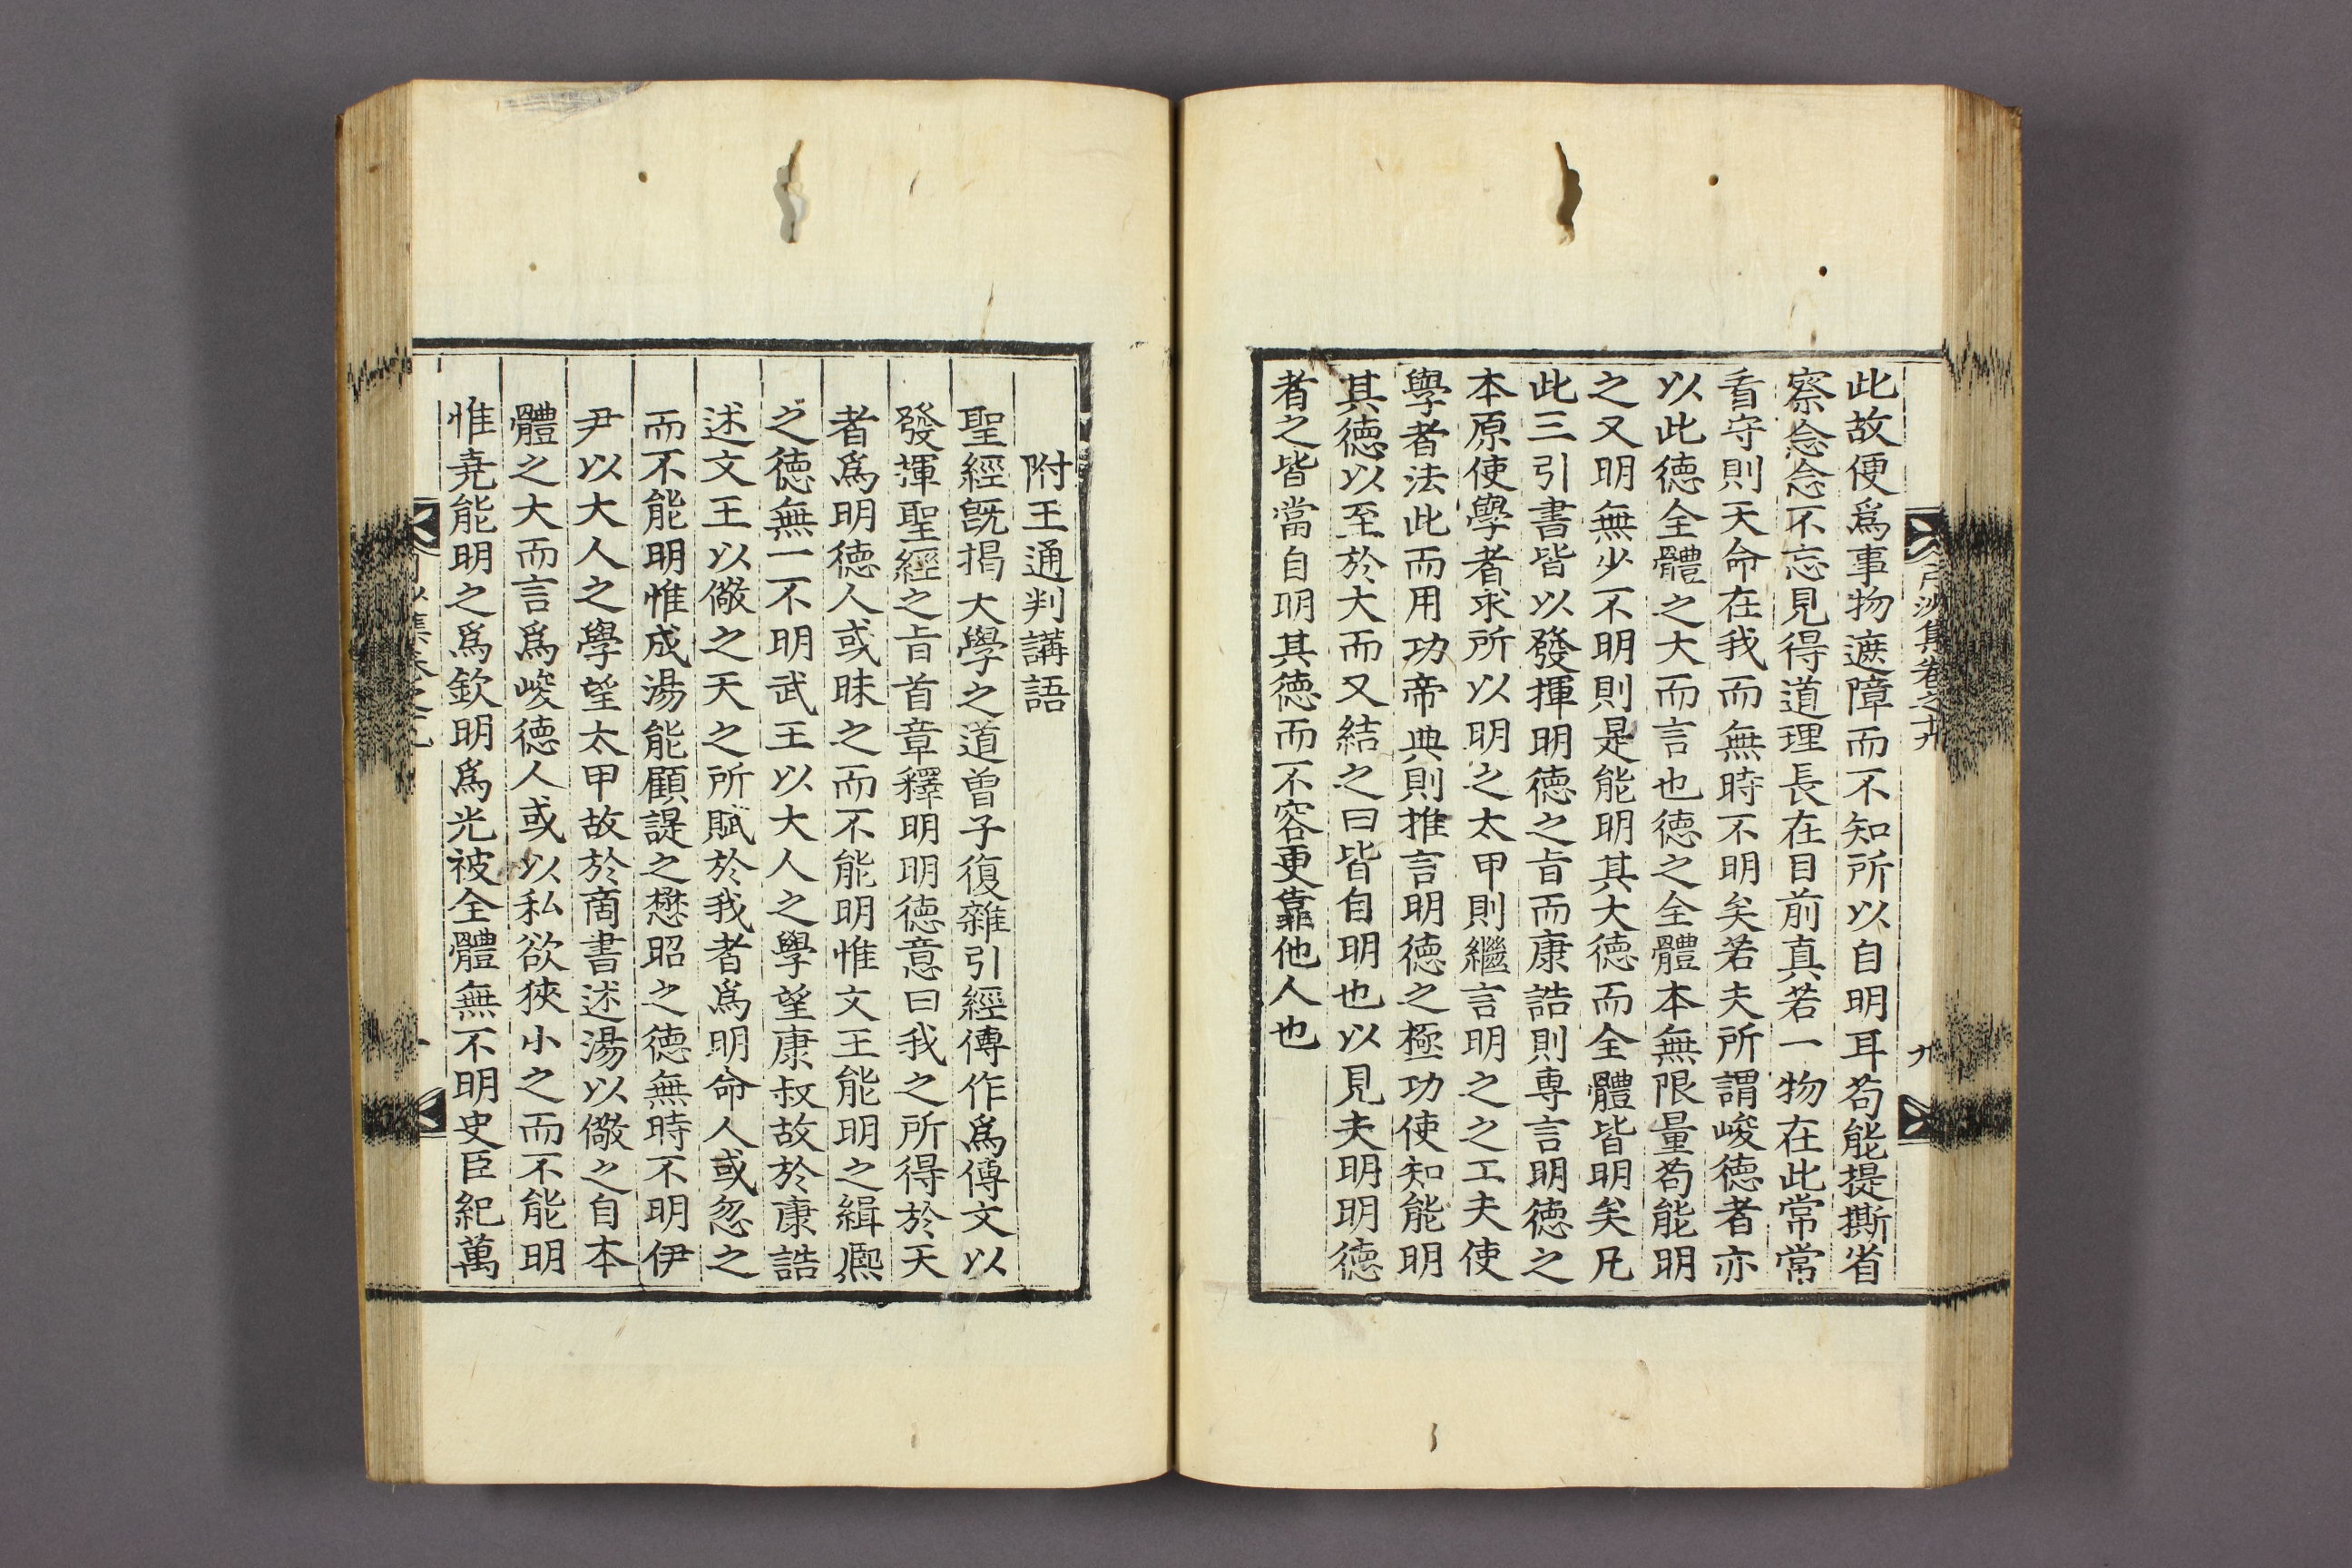 此故便爲事物遮障而不知所以自明耳苟能提撕省
察念念不忘見得道理長在目前真若一物在此常常
看守則天命在我而無時不明矣若夫所謂峻德者亦
以此德全體之大而言也德之全體本無限量苟能明
之又明無少不明則是能明其大德而全體皆明矣凡
此三引書皆以發揮明德之旨而康誥則專言明德之
本原使學者求所以明之太甲則繼言明之之工夫使
學者法此而用功帝典則推言明德之極功使知能明
其德以至於大而又結之曰皆自明也以見夫明明德
者之皆當自明其德而不容更靠他人也
沙集卷之十九
九
附王通判講語
聖經旣揭大學之道曾子復雜引經傳作爲傳文以
發揮聖經之旨首章釋明明德意曰我之所得於天
者爲明德人或昧之而不能明惟文王能明之緝熙
之德無一不明武王以大人之學望康叔故於康誥
述文王以儆之天之所賦於我者爲明命人或忽之
而不能明惟成湯能顧諟之懋昭之德無時不明伊
尹以大人之學望太甲故於商書述湯以儆之自本
體之大而言爲峻德人或以私欲狹小之而不能明
惟堯能明之爲欽明爲光被全體無不明史臣紀萬